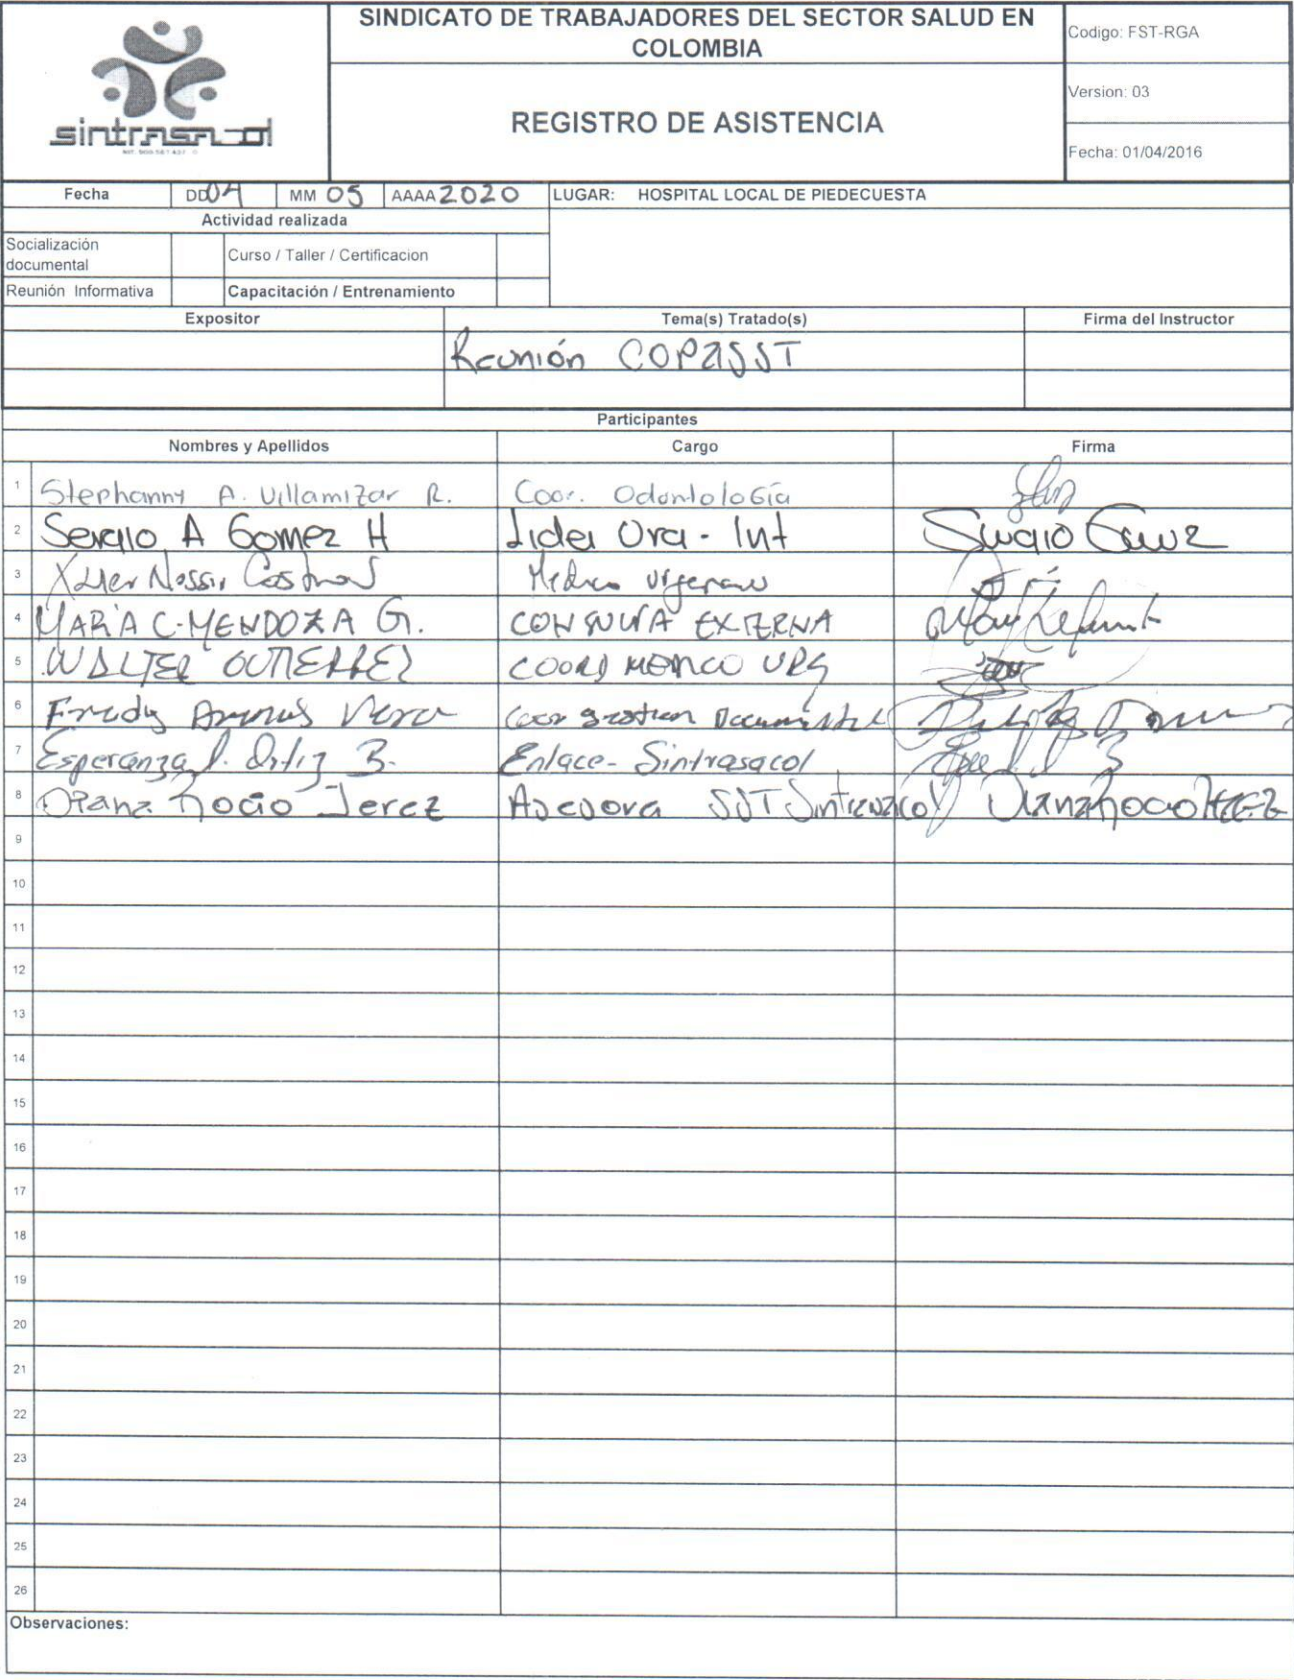 SINDICATO DE TRABAJADORES DEL SECTOR SALUD EN
COLOMBIA
Codigo: FST-RGA
Version: 03
REGISTRO DE ASISTENCIA
Fecha: 01/04/2016
sintrasacol
Fecha DD 04 MM 05 AAAA 2020 LUGAR: HOSPITAL LOCAL DE PIEDECUESTA
Actividad realizada
Socialización
documental
Curso / Taller / Certificacion
Reunión Informativa Capacitación / Entrenamiento
Expositor Tema(s) Tratado(s) Firma del Instructor
Reunión COPASST
Participantes
Nombres y Apellidos Cargo Firma
1 Stephanny A. Villamizar R. Coor. Odontología
2 Sergio A Gomez H Lider Ura - Int Sergio Gomez
3 Médico Urgencias
4 MARIA C. MENDOZA G. CONSULTA EXTERNA
5 WALTER GUTIERREZ COORD MEDICO URG
6 Fredy Vera Coor gestion Documental
7 Esperanza Ortiz B. Enlace - Sintrasacol
8 Diana Rocio Jerez Asesora SST Sintrasacol Diana Rocio Jerez
9
10
11
12
13
14
15
16
17
18
19
20
21
22
23
24
25
26
Observaciones: